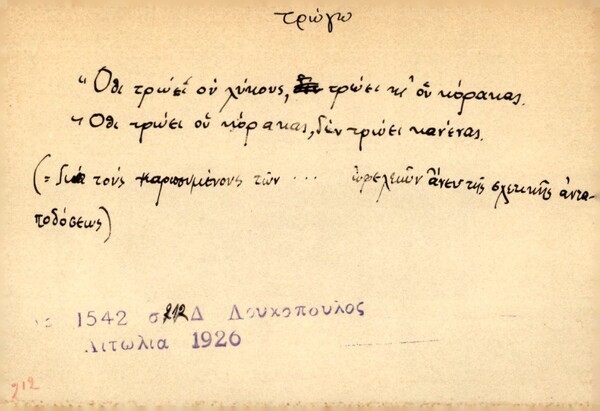 τρώγω
"Ὅθι τρώει οὑ λύκους, τρώει κ' οὑ κόρακας.
"Ὅθι τρώει οὑ κόρακας, δὲν τρώει κανένας.
(= διὰ τοὺς καρπουμένους τῶν ... ὠφελειῶν ἄνευ τῆς σχετικῆς ἀντα-
ποδόσεως)
1542 σ 212 Δ Λουκοπουλος
Αιτωλια 1926
212